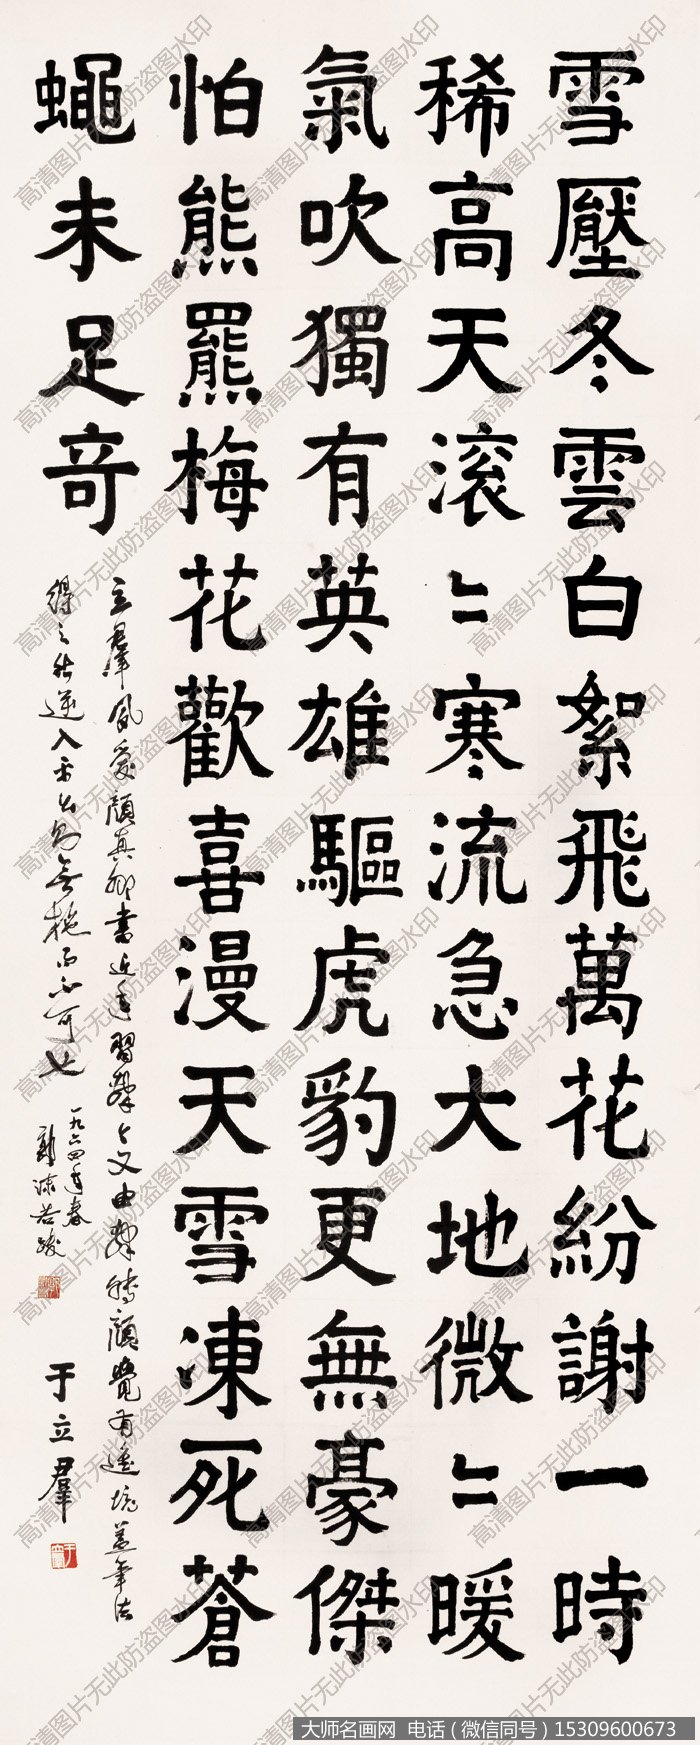 雪壓冬雲白絮飛萬花紛謝一時
稀高天滚〻寒流急大地微〻暖
氣吹獨有英雄驅虎豹更無豪傑
怕熊羆梅花歡喜漫天雪凍死蒼
蠅未足奇
立羣夙愛顏真卿書近年習
轉顏覺有進境蓋筆法
得之於逆入平出故無施而不可也
一九六四年春
郭沫若跋
于立羣
高清图片无此防盗图水印
大师名画网 电话（微信同号）15309600673